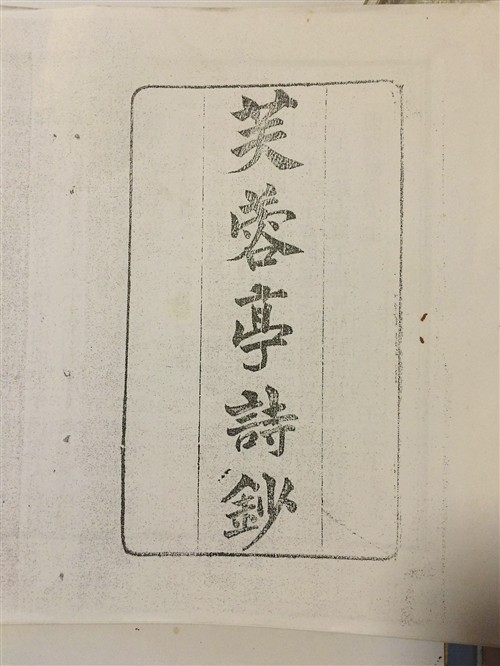 芙蓉亭詩鈔